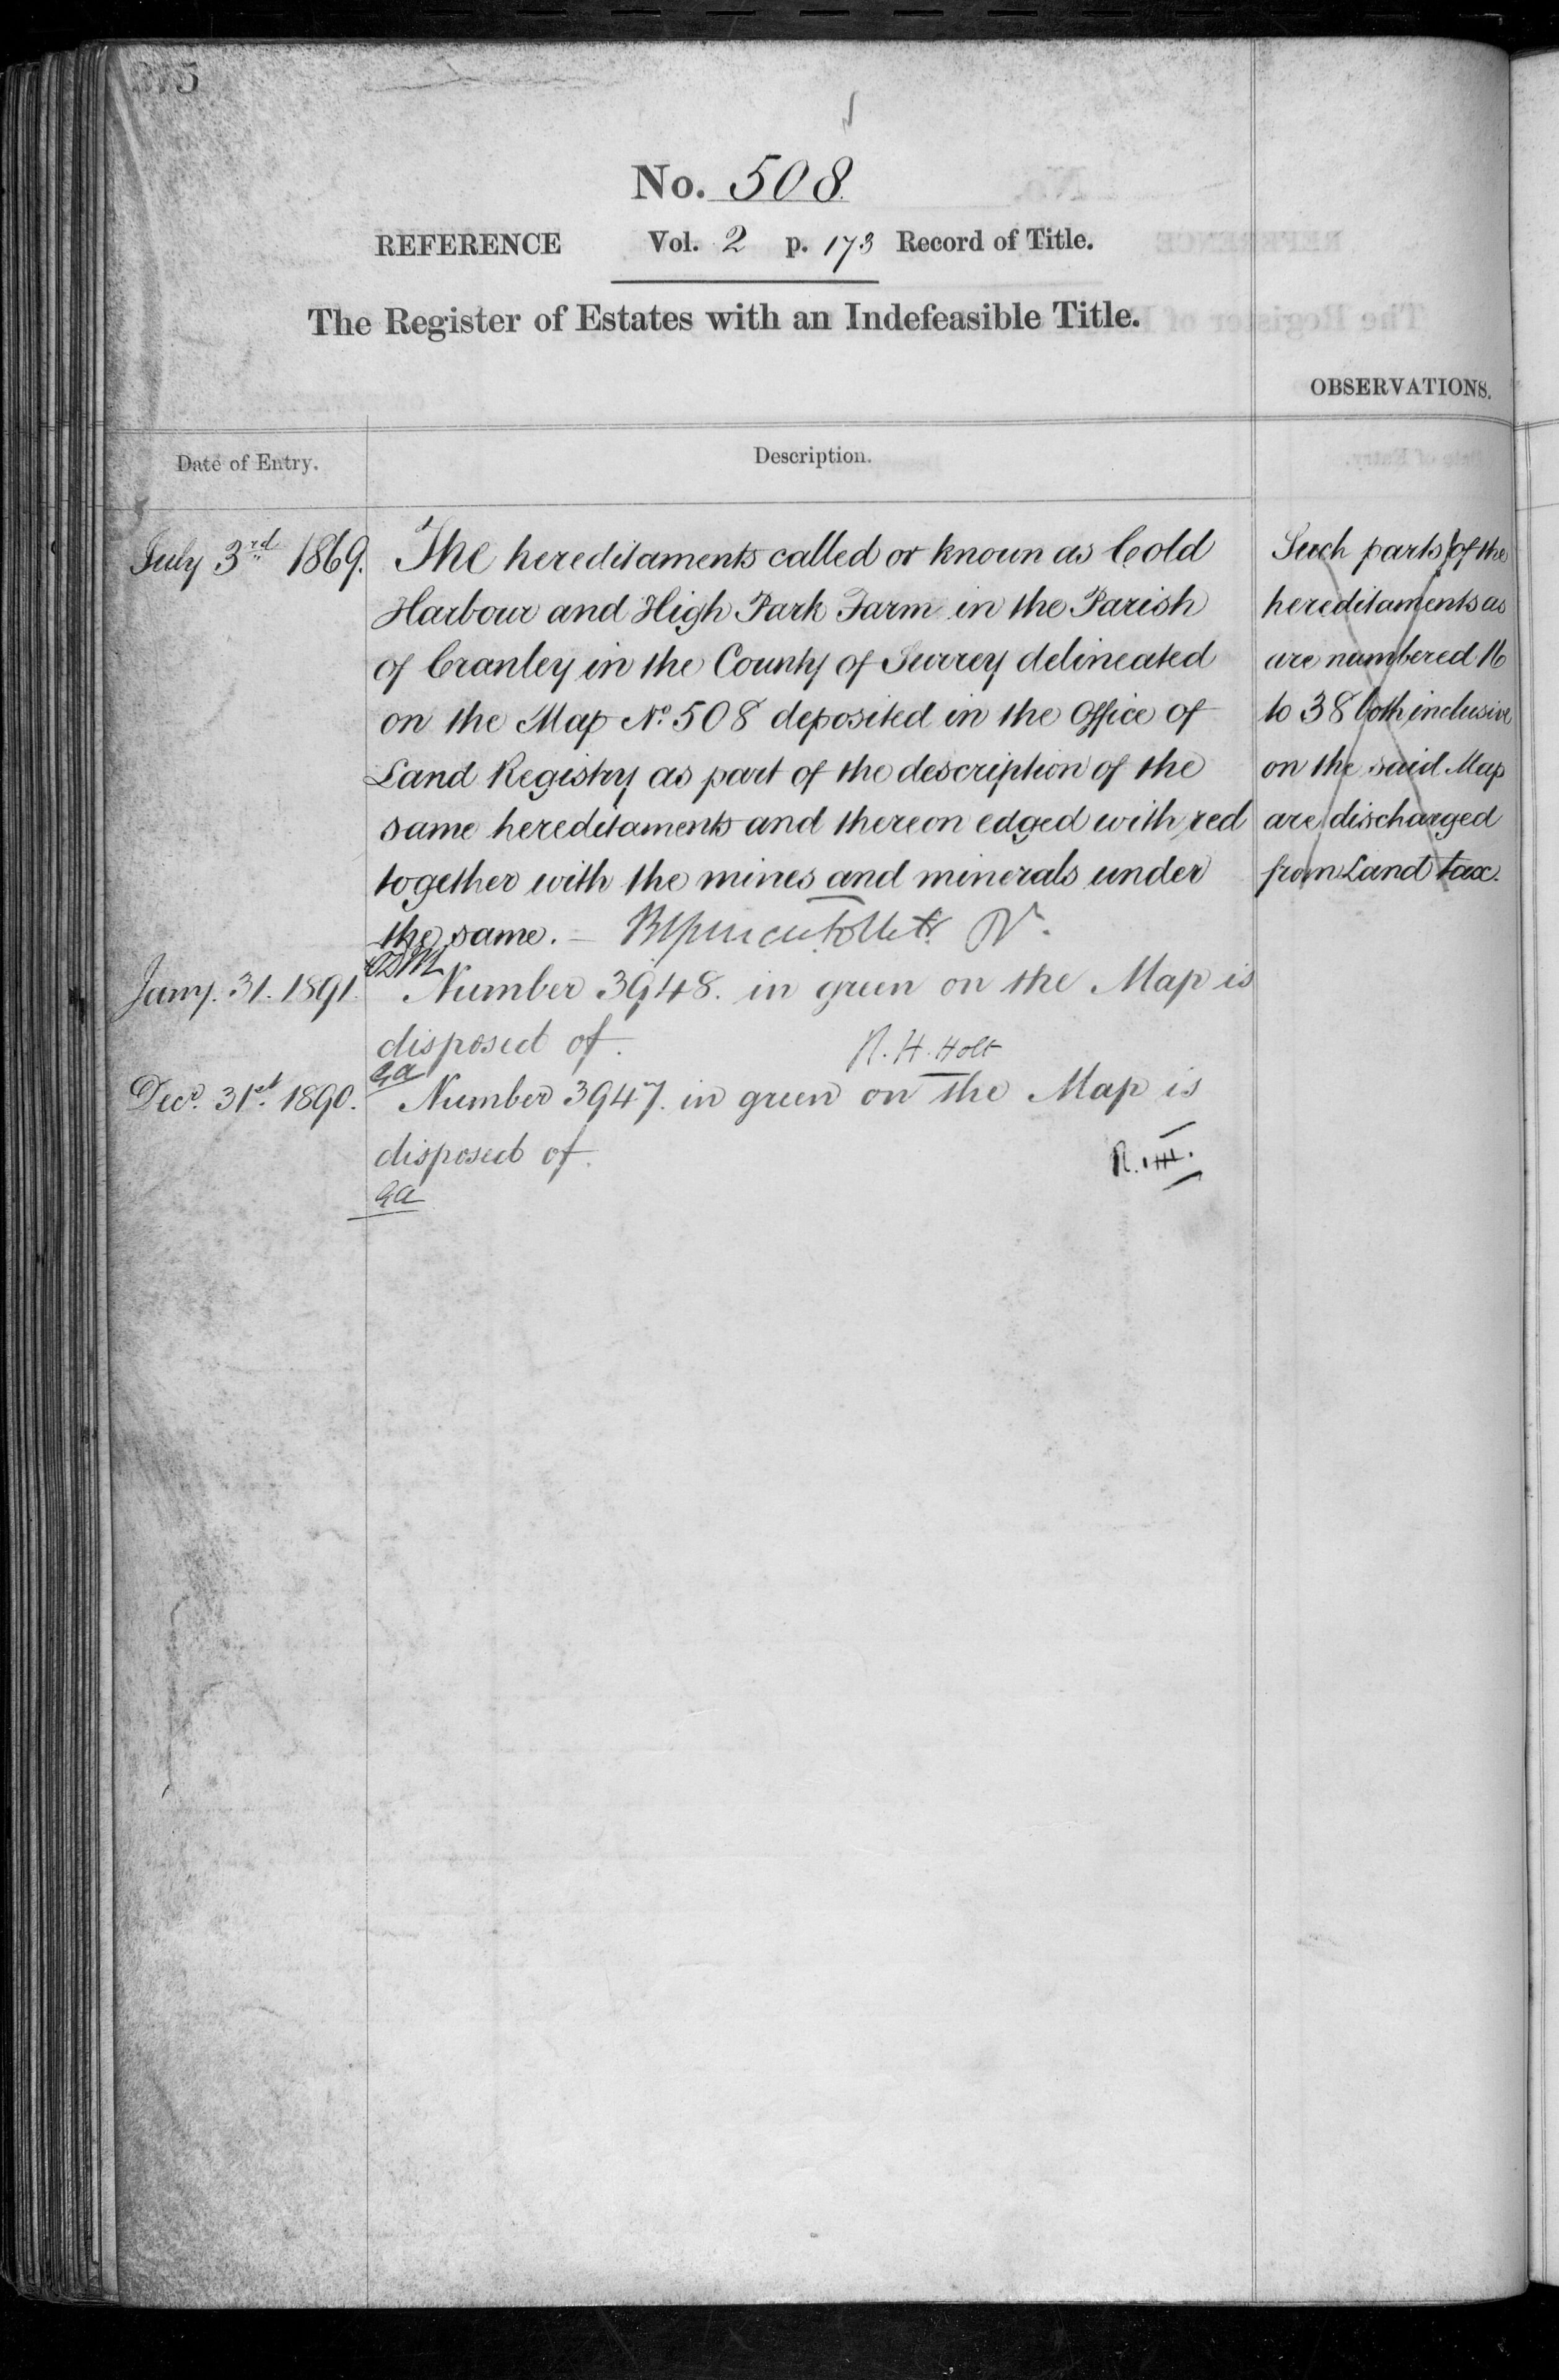 375
No. 508.
REFERENCE Vol. 2 p. 173 Record of Title.
The Register of Estates with an Indefeasible Title.
OBSERVATIONS.
Date of Entry.
Description.
July 3rd 1869.
The hereditaments called or known as Cold
Harbour and High Park Farm in the Parish
of Cranley in the County of Surrey delineated
on the Map No. 508 deposited in the Office of
Land Registry as part of the description of the
same hereditaments and thereon edged with red
together with the mines and minerals under
the same. –
Such parts of the
hereditaments as
are numbered 16
to 38 both inclusive
on the said Map
are discharged
from Land tax.
Jany. 31. 1891.
Number 3948. in green on the Map is
disposed of. R. H. Holt
Decr. 31st. 1890.
Number 3947. in green on the Map is
disposed of.